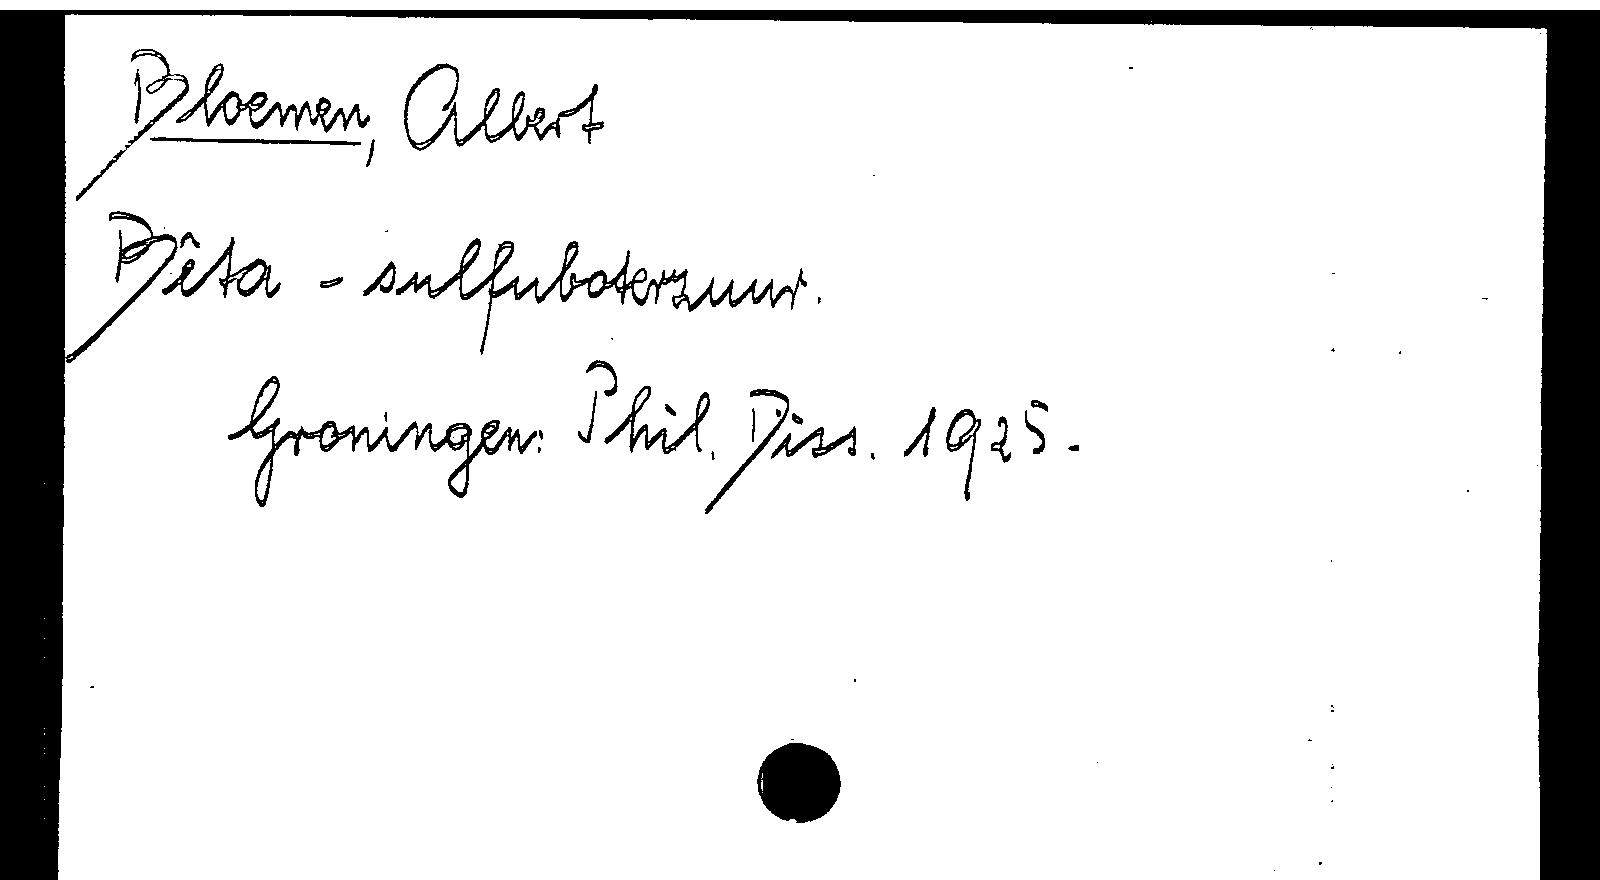 Bloemen, Albert
Bêta - sulfuboterzuur.
Groningen: Phil. Diss. 1925.